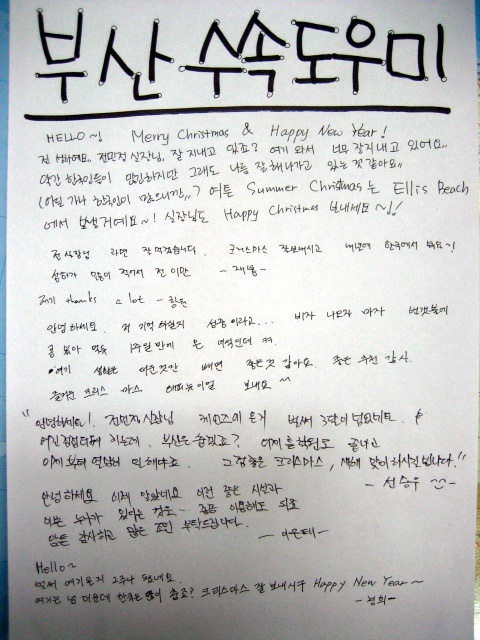 부산 수속도우미
HELLO~! Merry Christmas & Happy New Year!
전민정 실장님, 잘 지내고 있죠? 여기 와서 너무 잘 지내고 있어요..
약간 한국인들이 많긴하지만 그래도 나름 잘 해나가고 있는 것 같아요..
(어딜 가나 한국인이 많으니깐..) 여튼 Summer Christmas는 Ellis Beach
에서 보낼거예요~! 실장님도 Happy Christmas 보내세요~!
전 실장님 라면 잘 먹겠습니다. 크리스마스 잘보내시고 내년에 한국에서 봐요~!
thanks a lot -
안녕하세요. 저 기억하실지 이라고... 비자 나오자 마자 번갯불에
콩 볶아 먹듯 1주일만에 온 녀석인데 ㅋㅋ.
여기 생활은 더운것만 빼면 좋은것 같아요. 좋은 추천 감사.
즐거운 크리스마스 해피뉴이얼 보내요 ^^
"안녕하세요! 전민정실장님 케언즈에 온지 벌써 3달이 넘었네요.
부산은 춥죠? 이제 학원도 끝나고
이제부터 열심히 일 해야죠. 그럼 좋은 크리스마스, 새해 맞이하시길 빕니다."
- 선승우 -
안녕하세요 이제 알았네요 이런 좋은 시설과
이쁜 누나가 있다는 것을~ 이용해도 되죠
암튼 감사하고 많은 조언 부탁드립니다.
Hello~
벌써 여기온지 2주나 됐네요.
여기는 넘 더운데 한국은 많이 춥죠? 크리스마스 잘 보내시구 Happy New Year~
-경희-